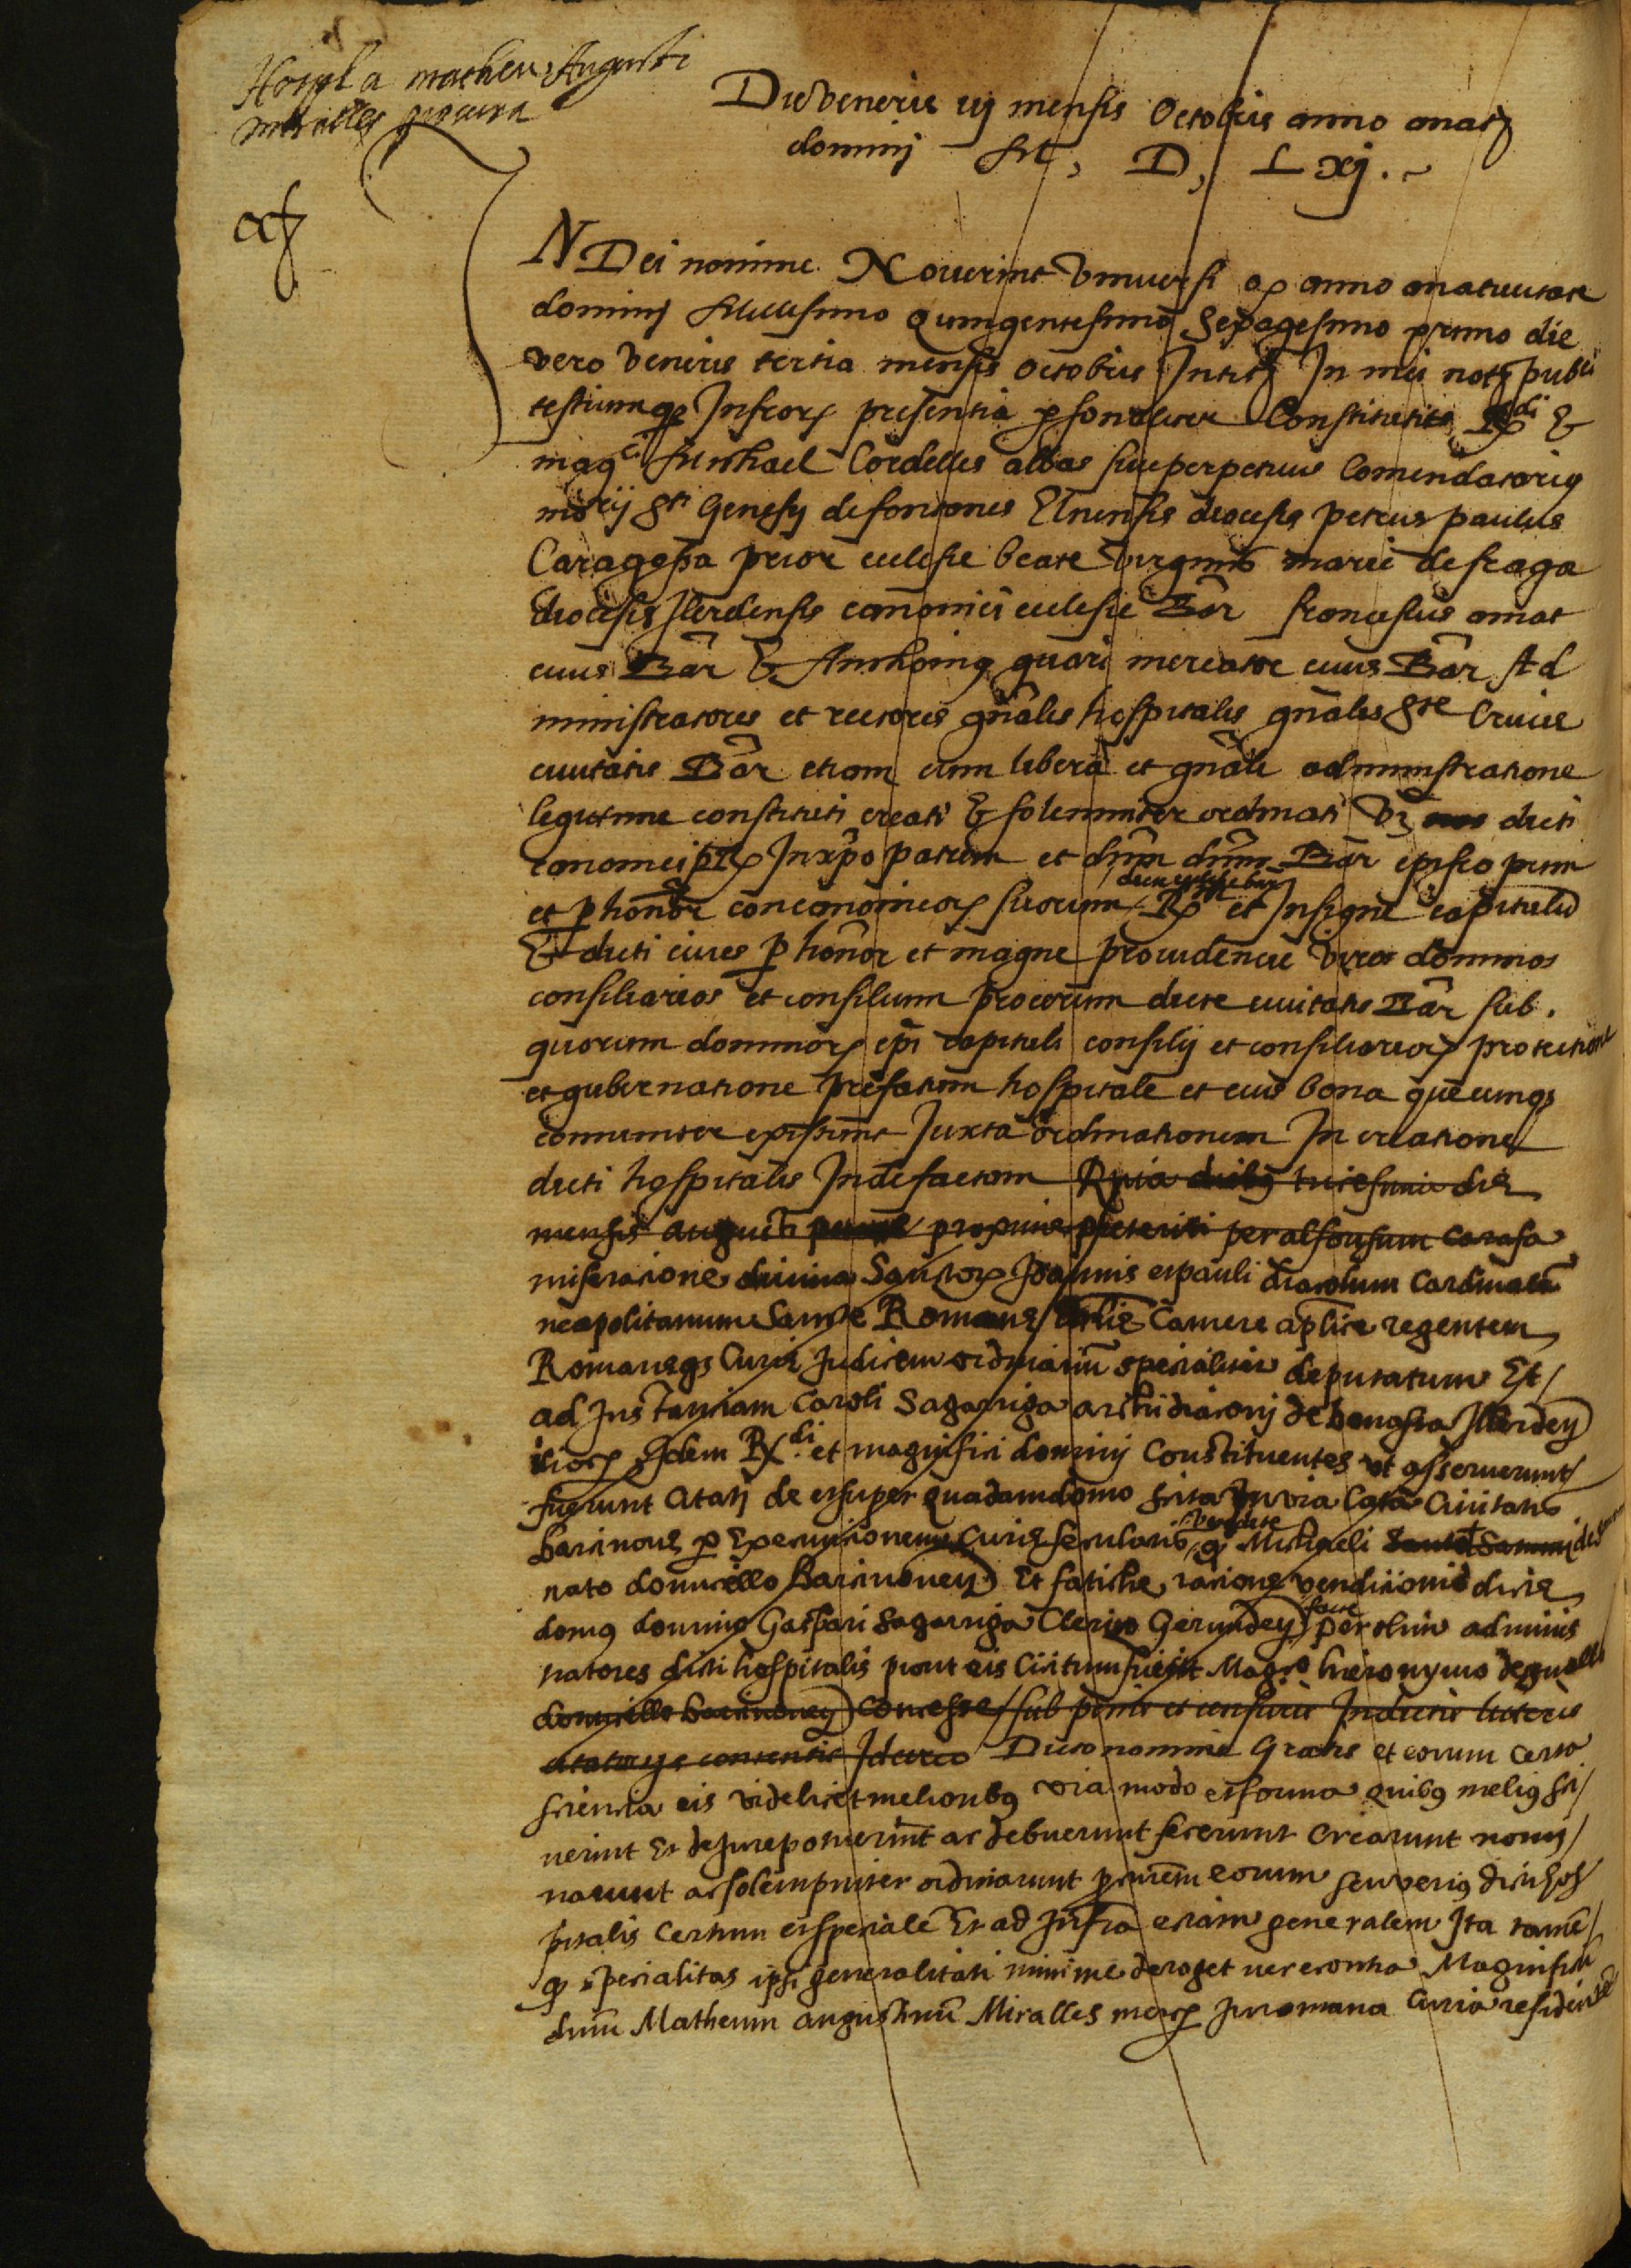 Hospl a matheu Augusti
miralles procura
Die veneris iij mensis Octobris anno a nat
dominj M, D, Lxj.
N Dei nomine. Noverint universi q anno a nativitate
dominj Millesimo quingentesimo Sexagesimo primo die
vero veneris tertia mensis octobris Intit In mei not publi
testiumq Infror presentia psonaliter Constituti Rdi &
magci Michael Cordelles abbas sive perpetuus Comendatarius
morij sti Genesij de fontanes Elnensis diocesis petrus paulus
Caragossa prior ecclesie beate virginis marie de fraga
diocesis Ilerdensis canonici ecclesie Bar franciscus amat
civis Bar & Anthonius quari mercator civis Bar Ad
ministratores et rectores gnalis hospitalis gnalis ste Crucis
civitatis Bar etiam cum libera et gnali administratione
legitime constituti creati & solemniter ordinati vz nos dicti
canonici p R In xpo patrem et dnm dnm Bar episcopum
et p honor concanonicor suorum R et Insigne capitulu
& dicti cives p honor et magne providencie viros dominos
consiliarios et consilium procerum dicte civitatis Bar sub.
quorum dominor epi capituli consilij et consiliarior protectione
et gubernatione prefatum hospitale et eius bona quecumqz
comuniter existunt Iuxta ordinationem In creatione
dicti hospitalis Inde factam Quia diebus tricesimi die
mensis augusti proxime preteriti per alfonsum Carafa
miseracione divina Sanctor Joannis et pauli diacolum Cardinale
neapolitanum Sancte Romane Camere aplice regentem
Romaneqs Curie Judicem ordinariu specialiter deputatum Et/
ad Instanciam Caroli Sagarriga archidiaconj de benasca Ilerden
Idem Rdi et magnifici dominj Constituentes ut asseruerunt/
fuerunt Citatj de et super quadam domo sita In via Civitatis
barcinone p Executionem Curie secularis vendite Michaeli
nato domicello Barcinonen Et fatiche racione vendicionis dicte
domus domino Gaspari Sagarriga Clerico Gerunden facte per olim adminis
tratores dicti hospitalis prout eis licitum fuerit Magco hieronymo
domicello barcinonen Concesse/ sub penis et censuris In dictis litteris
citatorijs contentis Idcirco Dicto nomine Gratis et eorum certa
sciencia eis videlicet melioribus via modo et forma quibus melius sci/
verint Et de Jure potuerint ac debuerunt fecerunt crearunt nomi/
narunt ac solempniter ordinarunt prem eorum seu verius dicti hos
pitalis Certum et speciale Et ad Infra eciam generalem Ita tame/
q specialitas ipsi generalitati minime deroget nec e contra Magnificu
dnm Matheum augustinu Miralles In romana Curia residente